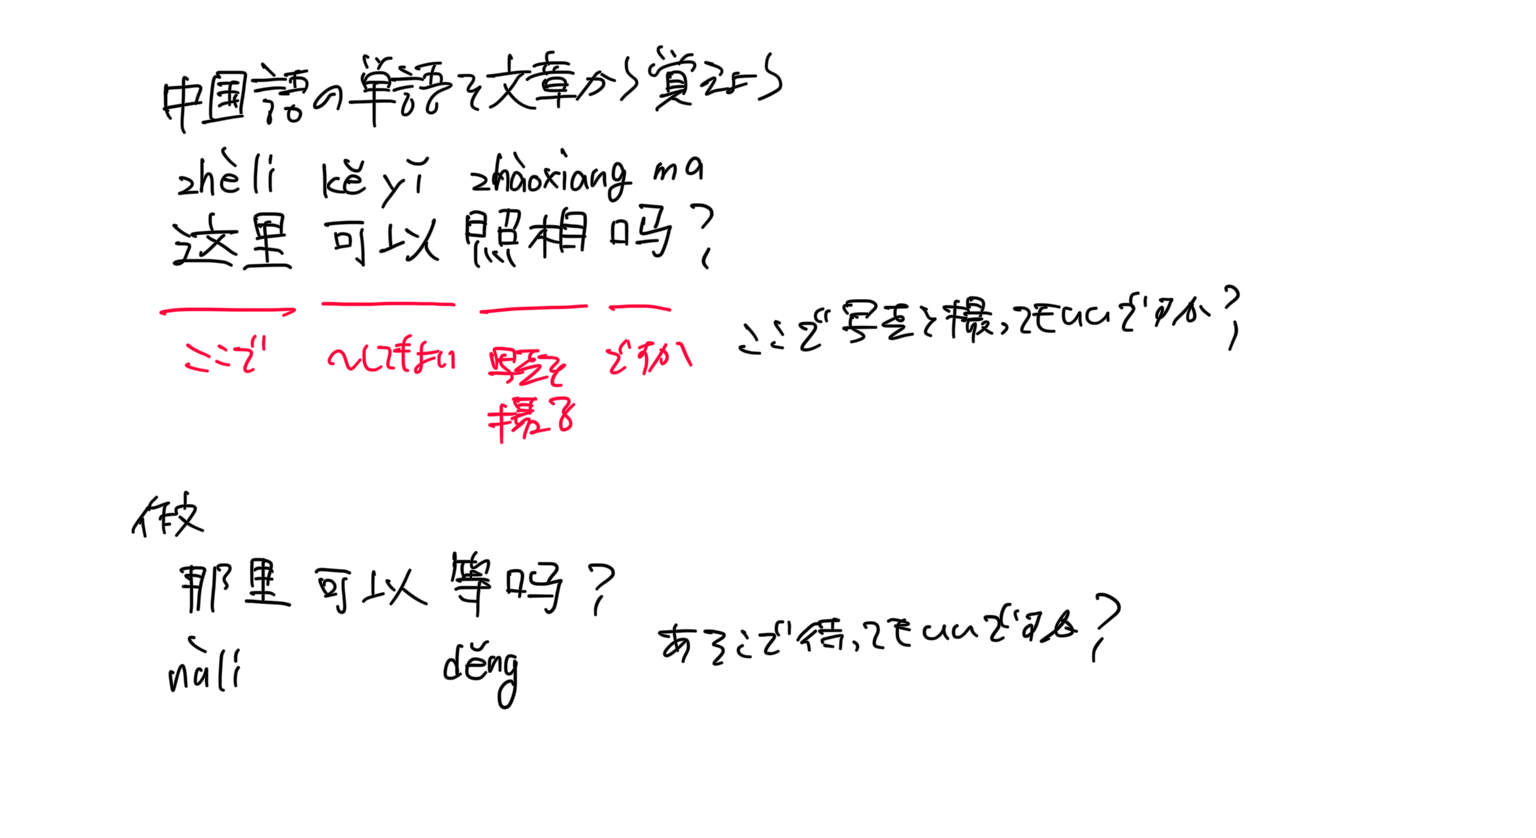 中国語の単語を文章から覚えよう
zhèli kěyǐ zhàoxiàng ma
这里 可以 照相 吗?
ここで 〜してもよい 写真を撮る ですか
ここで写真を撮ってもいいですか?
作文
那里 可以 等吗?
nàli děng
あそこで待ってもいいですか?